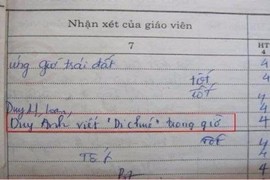 Nhận xét của giáo viên
HT
7
4
ứng giờ trái đất
4
tốt
4
tốt
4
Duy, loan,
4
Duy Anh viết "Di chúc" trong giờ
4
Tốt
Tốt
4